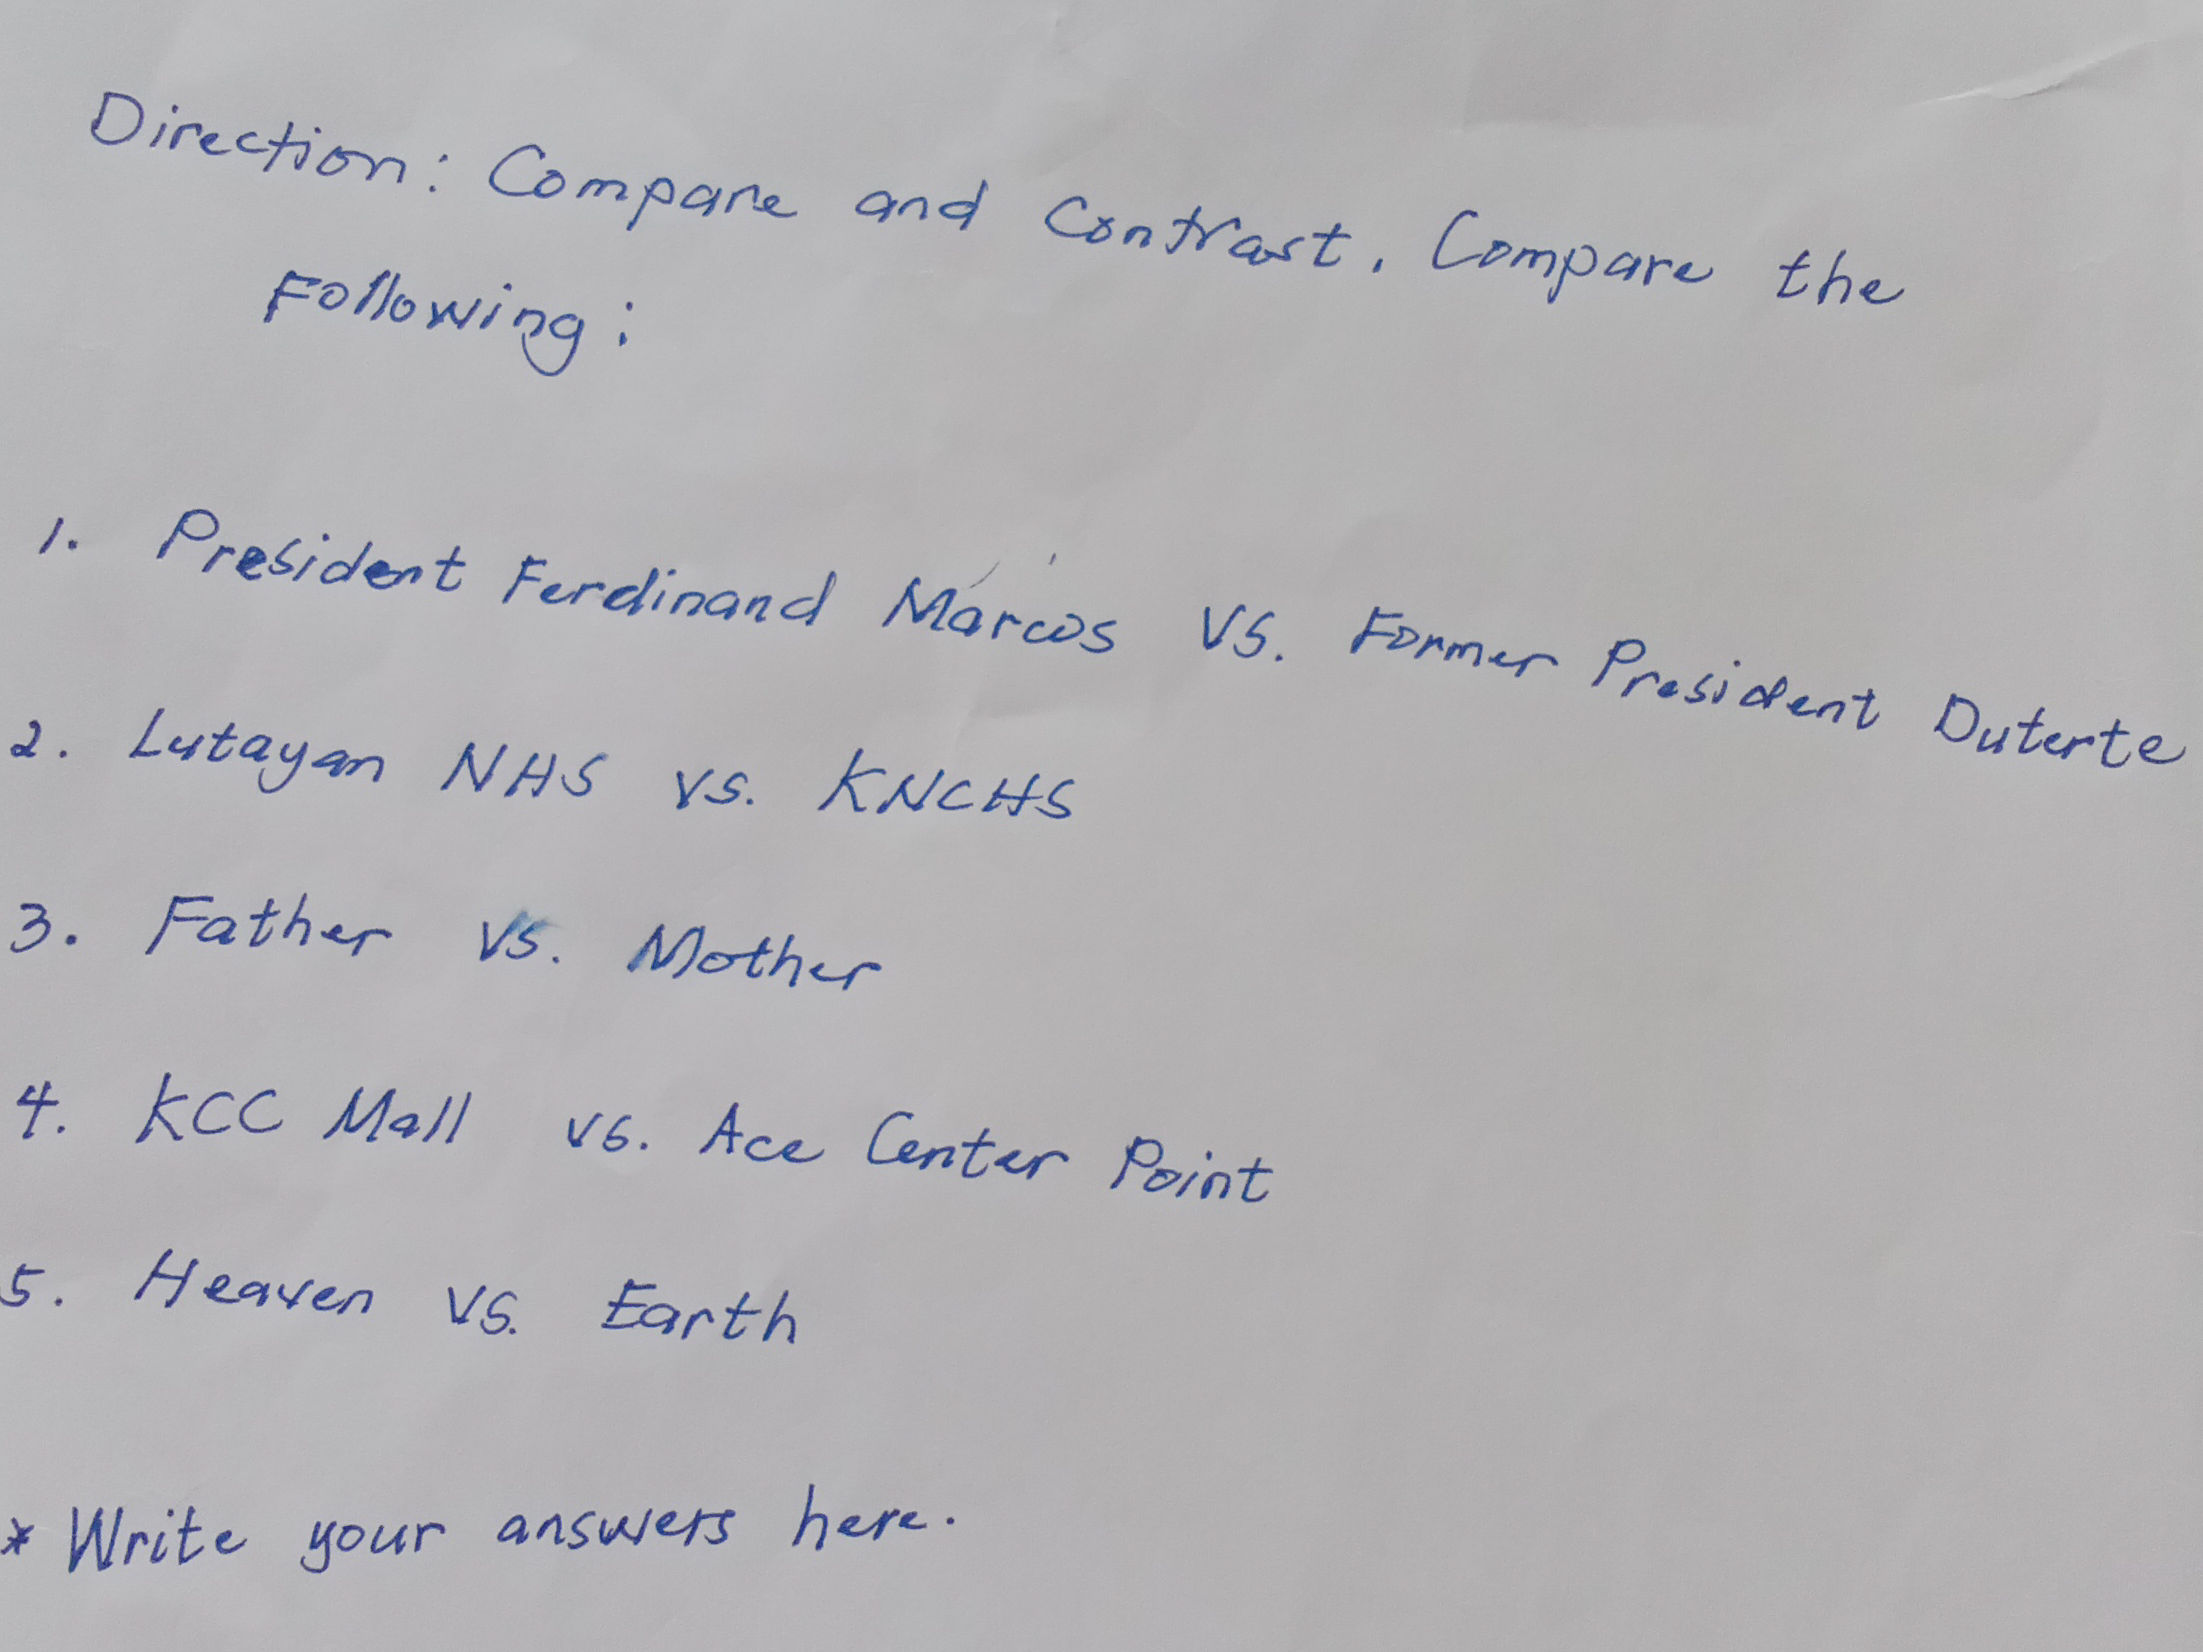 Direction: Compare and Contrast. Compare the
Following:
1. President Ferdinand Marcos VS. Former President Duterte
2. Lutayan NHS vs. KNCHS
3. Father vs. Mother
4. KCC Mall vs. Ace Center Point
5. Heaven vs. Earth
* Write your answers here.